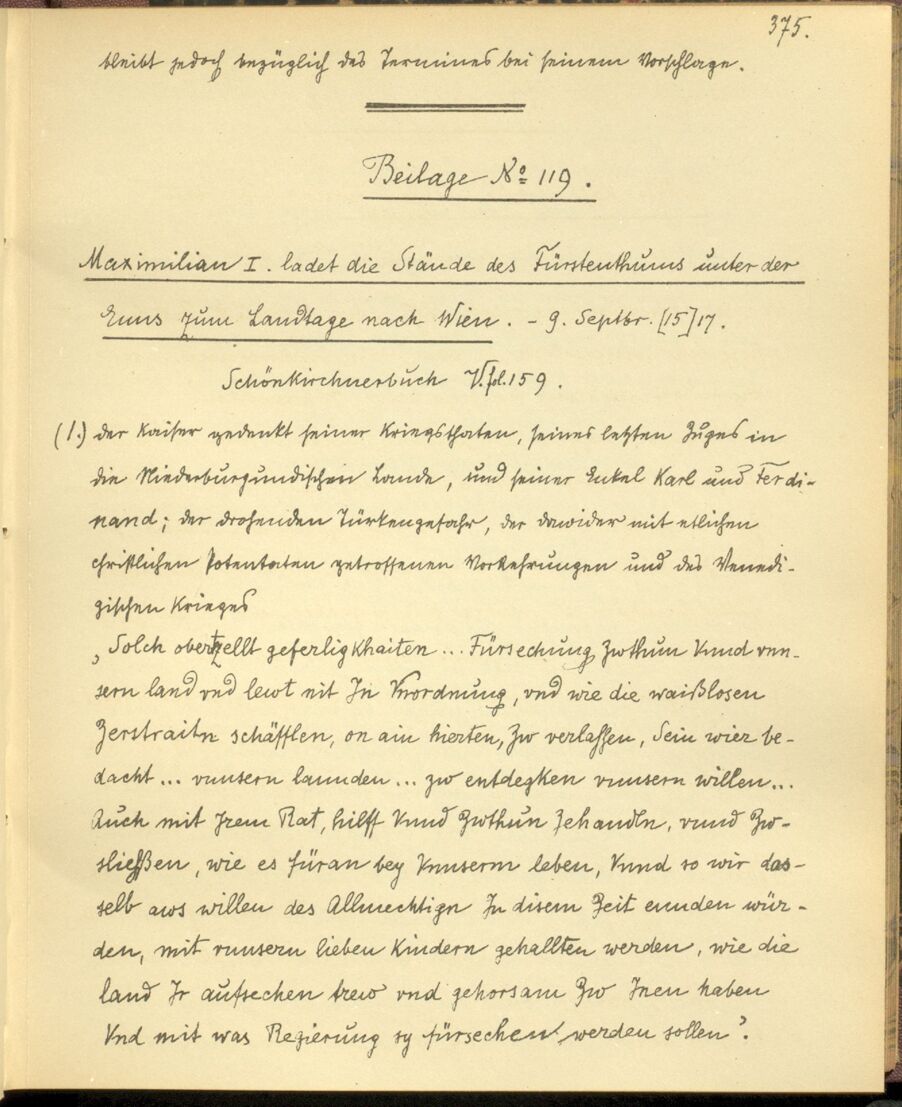 375.
bleibt jedoch bezüglich des Termines bei seinem Vorschlage.
Beilage No 119.
Maximilian I. ladet die Stände des Fürstenthums unter der
Enns zum Landtage nach Wien. - 9. Septbr. [15]17.
Schönkirchnerbuch V. fol. 159.
(1.) der Kaiser gedenkt seiner Kriegsthaten, seines letzten Zuges in
die Niederburgundischen Lande, und seiner Enkel Karl und Ferdi-
nand; der drohenden Türkengefahr, der dawider mit etlichen
christlichen Potentaten getroffenen Vorkehrungen und des Venedi-
gischen Krieges
„Solch obertzellt geferligkhaiten ... Fürsechung zwthun Vnnd vnn-
sern land vnd lewt nit In Vnordnung, vnd wie die waißlosen
Zerstraitn schäfflen, on ain hierten, Zw verlassen, Sein wier be-
dacht ... vnnsern lannden ... zw entdegken vnnsern willen ...
Auch mit Irem Rat, hilff Vnnd Zwthun Zehandln, vnnd Zw-
sliessen, wie es füran bey Vnnserm leben, Vnnd so wir das-
selb aws willen des Allmechtign In disem Zeit ennden wür-
den, mit vnnsern lieben Kindern gehallten werden, wie die
land Ir aufsechen trew vnd gehorsam Zw Inen haben
Vnd mit was Regierung sy fürsechen werden sollen".